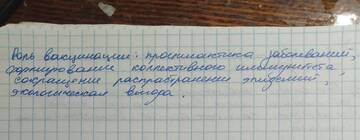 Роль вакцинации: профилактика заболеваний,
формирование коллективного иммунитета,
сокращение распространение эпидемий,
экологическая выгода.